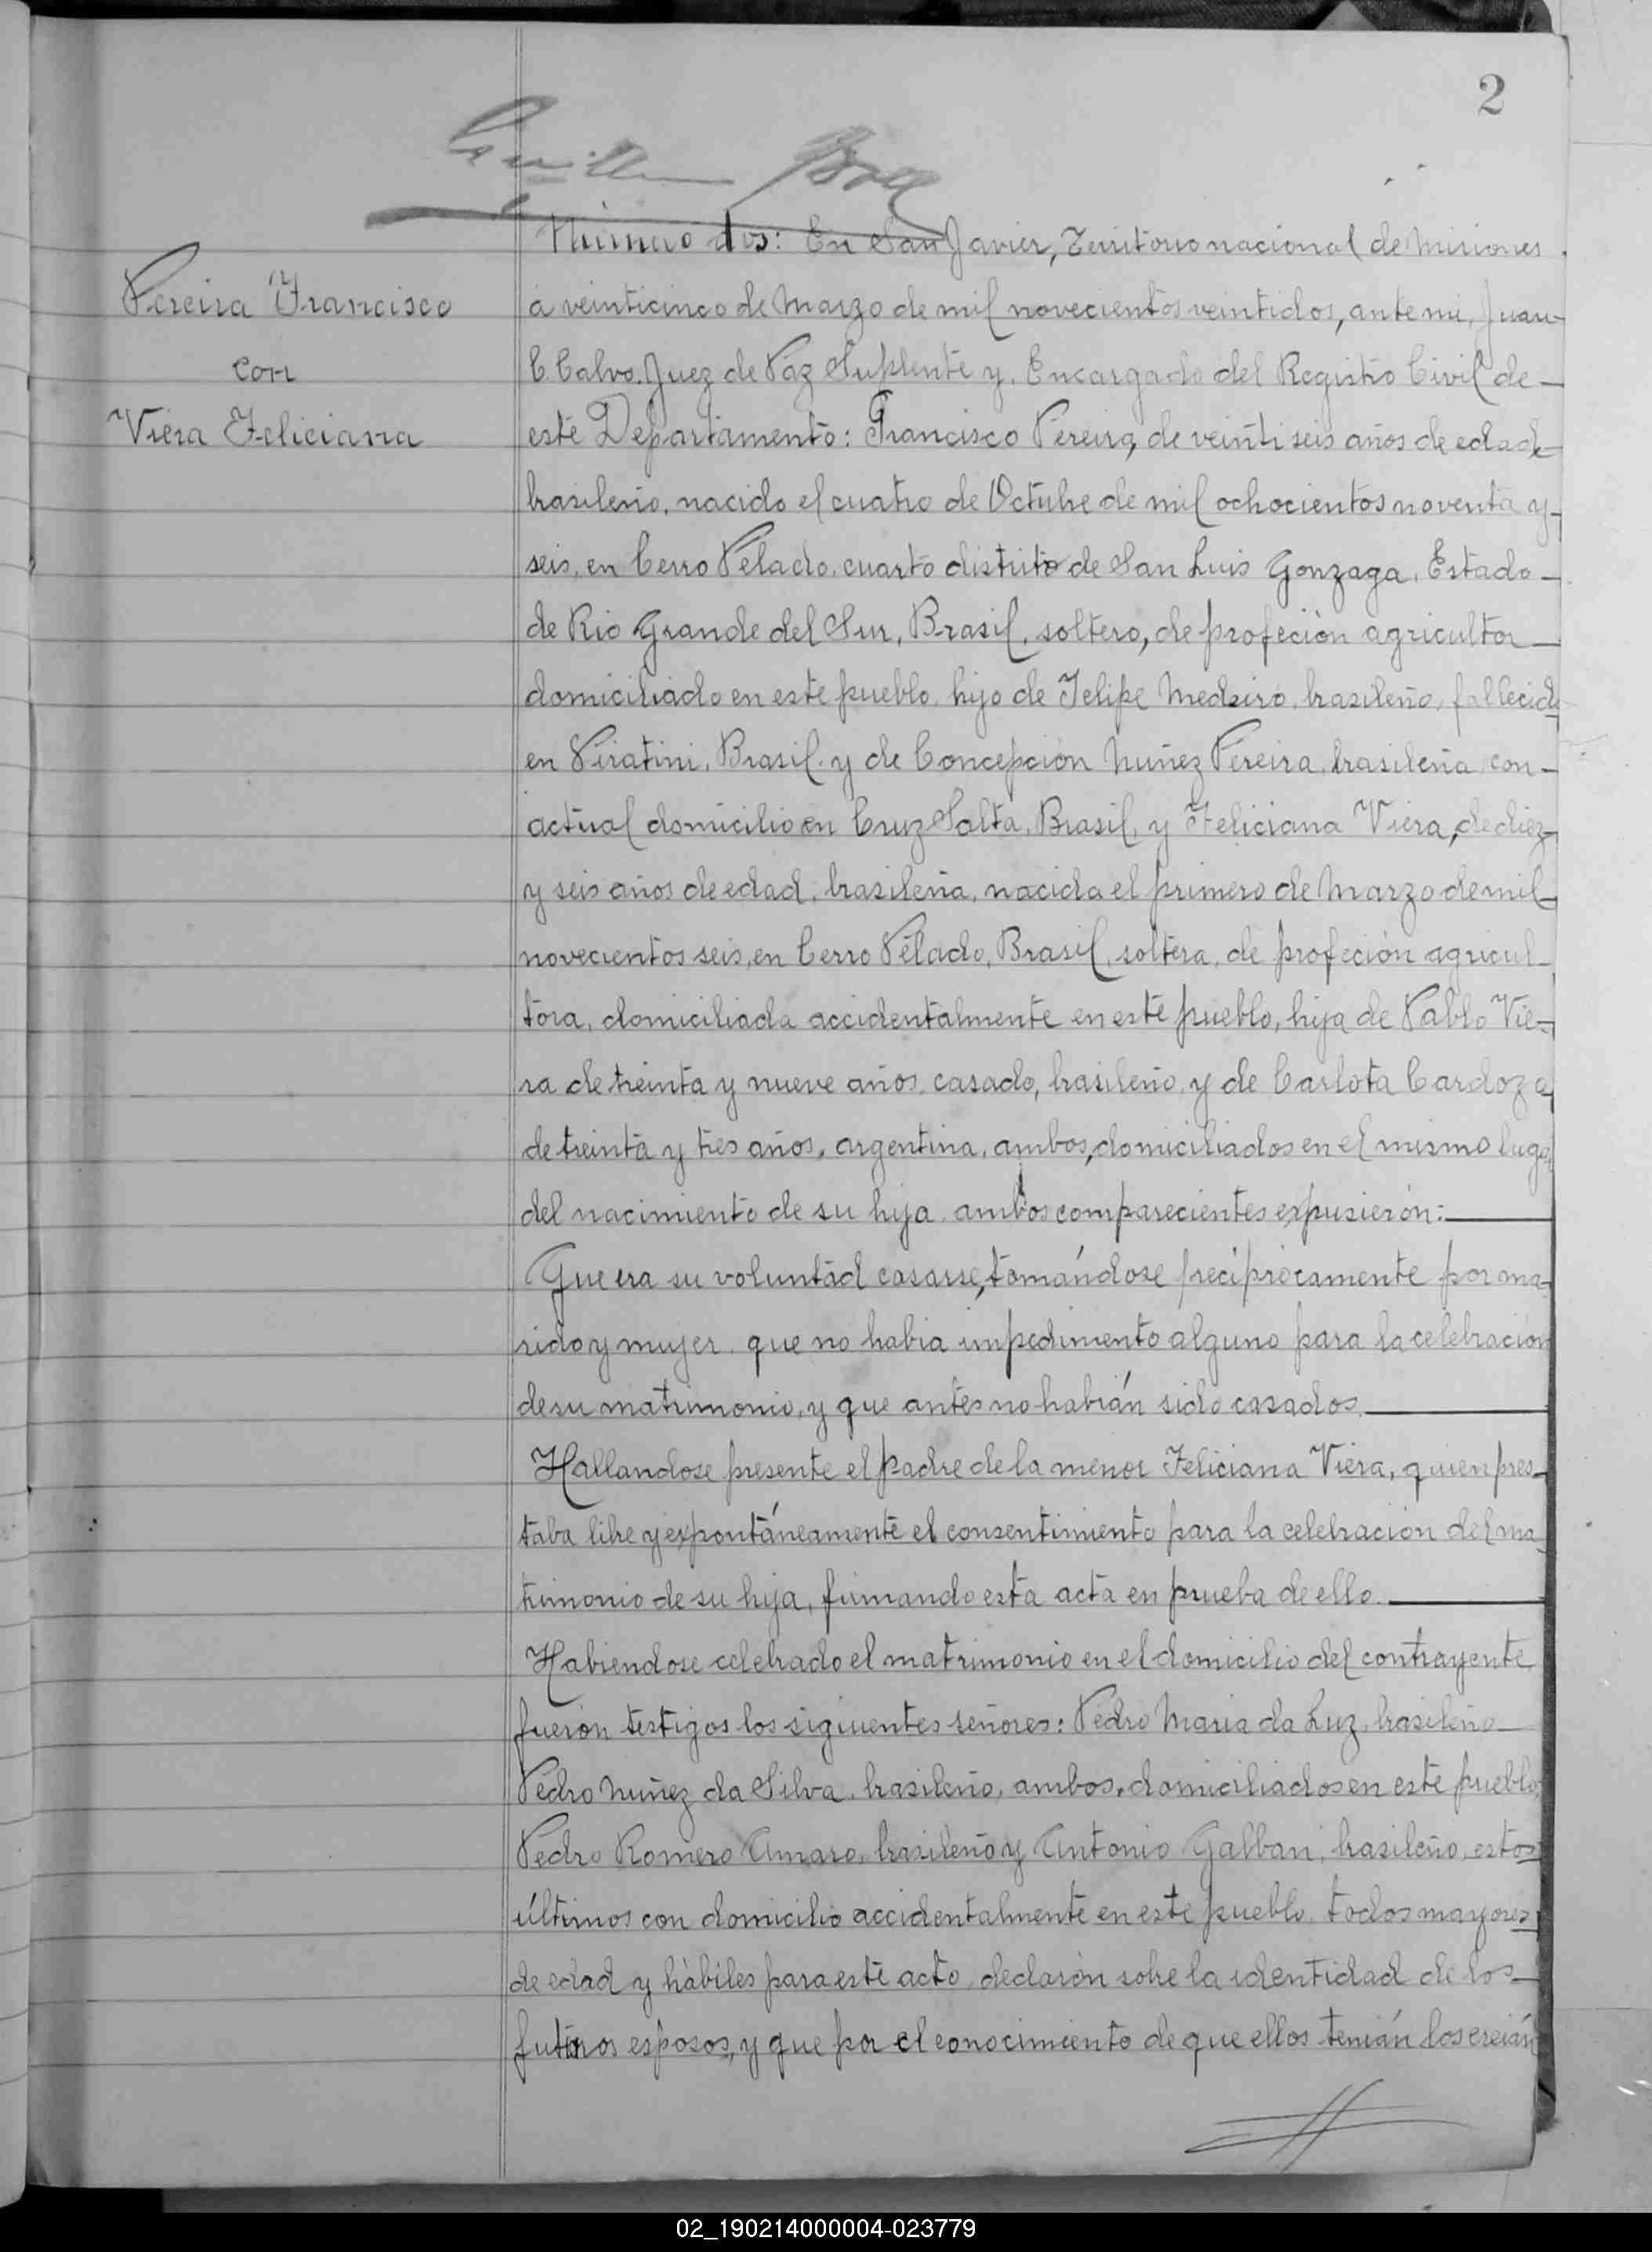 2
Número dos: En San Javier, Territorio nacional de Misiones
Pereira Francisco
con
Viera Feliciana
á veinticinco de Marzo de mil novecientos veintidos, ante mi, Juan
C. Calvo. Juez de Paz Suplente y. Encargado del Registro Civil de
este Departamento: Francisco Pereira, de veinti seis años de edad
brasileño, nacido el cuatro de Octubre de mil ochocientos noventa y
seis, en Cerro Pelado, cuarto distrito de San Luis Gonzaga, Estado
de Rio Grande del Sur, Brasil, soltero, de profeción agricultor
domiciliado en este pueblo, hijo de Felipe Medeiro, brasileño, fallecido
en Piratini, Brasil. y de Concepción Nuñez Pereira, brasileña, con
actual domicilio en Cruz Salta, Brasil, y Feliciana Viera, de diez
y seis años de edad, brasileña, nacida el primero de Marzo de mil
novecientos seis, en Cerro Pelado, Brasil, soltera, de profeción agricul-
tora, domiciliada accidentalmente en este pueblo, hija de Pablo Vie-
ra de treinta y nueve años, casado, brasileño, y de Carlota Cardoza
de treinta y tres años, argentina, ambos, domiciliados en el mismo lugar
del nacimiento de su hija. ambos comparecientes expusierón:
Que era su voluntad casarse, tomándose preciprocamente por ma-
rido y mujer. que no habia impedimento alguno para la celebración
de su matrimonio, y que antes no habián sido casados.
Hallandose presente el padre de la menor Feliciana Viera, quien pres-
taba libre y expontáneamente el consentimiento para la celebración del ma
trimonio de su hija, firmando esta acta en prueba de ello.
Habiendose celebrado el matrimonio en el domicilio del contrayente
fuerón testigos los siguientes señores: Pedro Maria da Luz, brasileño
Pedro Nuñez da Silva, brasileño, ambos, domiciliados en este pueblo,
Pedro Romero Amaro, brasileño y Antonio Galban, brasileño, estos
últimos con domicilio accidentalmente en este pueblo, todos mayores
de edad y hàbiles para este acto, declarón sobre la identidad de los
futuros esposos, y que por el conocimiento de que ellos tenián los creián
02_190214000004-023779